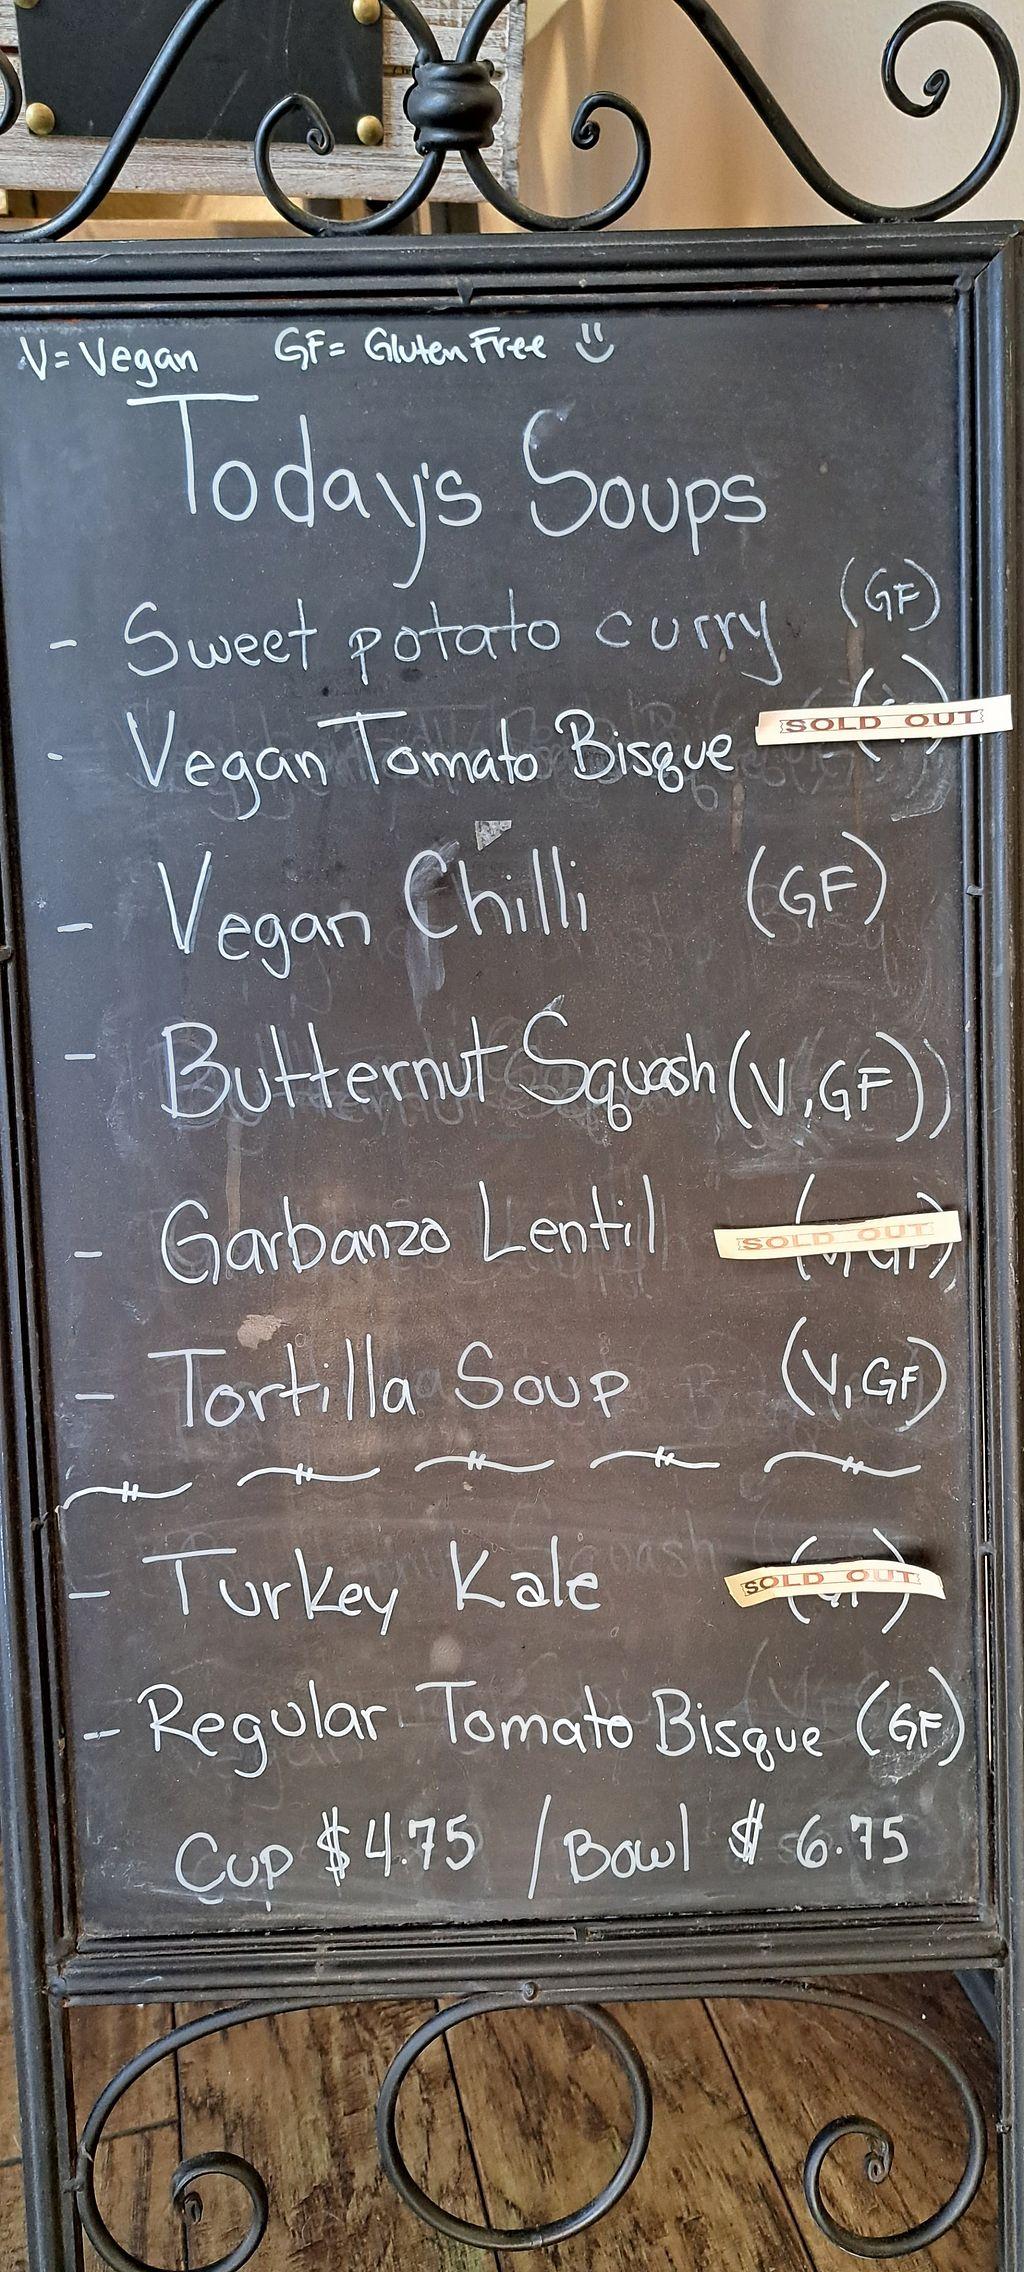 V= Vegan GF= Gluten Free
Today's Soups
- Sweet potato curry (GF)
- Vegan Tomato Bisque SOLD OUT
- Vegan Chilli (GF)
- Butternut Squash (V, GF))
- Garbanzo Lentil SOLD OUT (V, GF)
- Tortilla Soup (V, GF)
- Turkey Kale SOLD OUT (GF)
- Regular Tomato Bisque (GF)
Cup $4.75 / Bowl $ 6.75